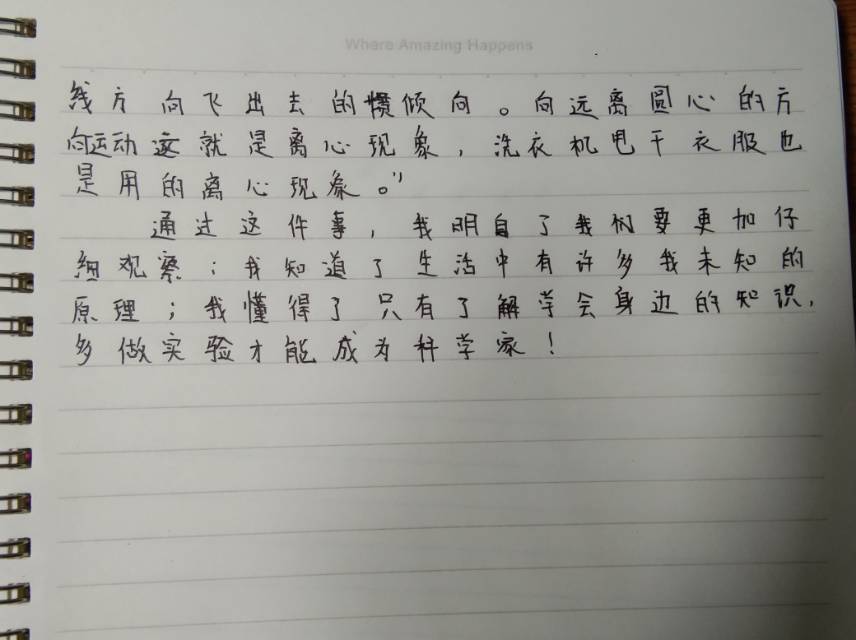 Where Amazing Happens
线方向飞出去的惯倾向。向远离圆心的方
向运动这就是离心现象，洗衣机甩干衣服也
是用的离心现象。”
通过这件事，我明白了我们要更加仔
细观察；我知道了生活中有许多我未知的
原理；我懂得了只有了解学会身边的知识，
多做实验才能成为科学家！